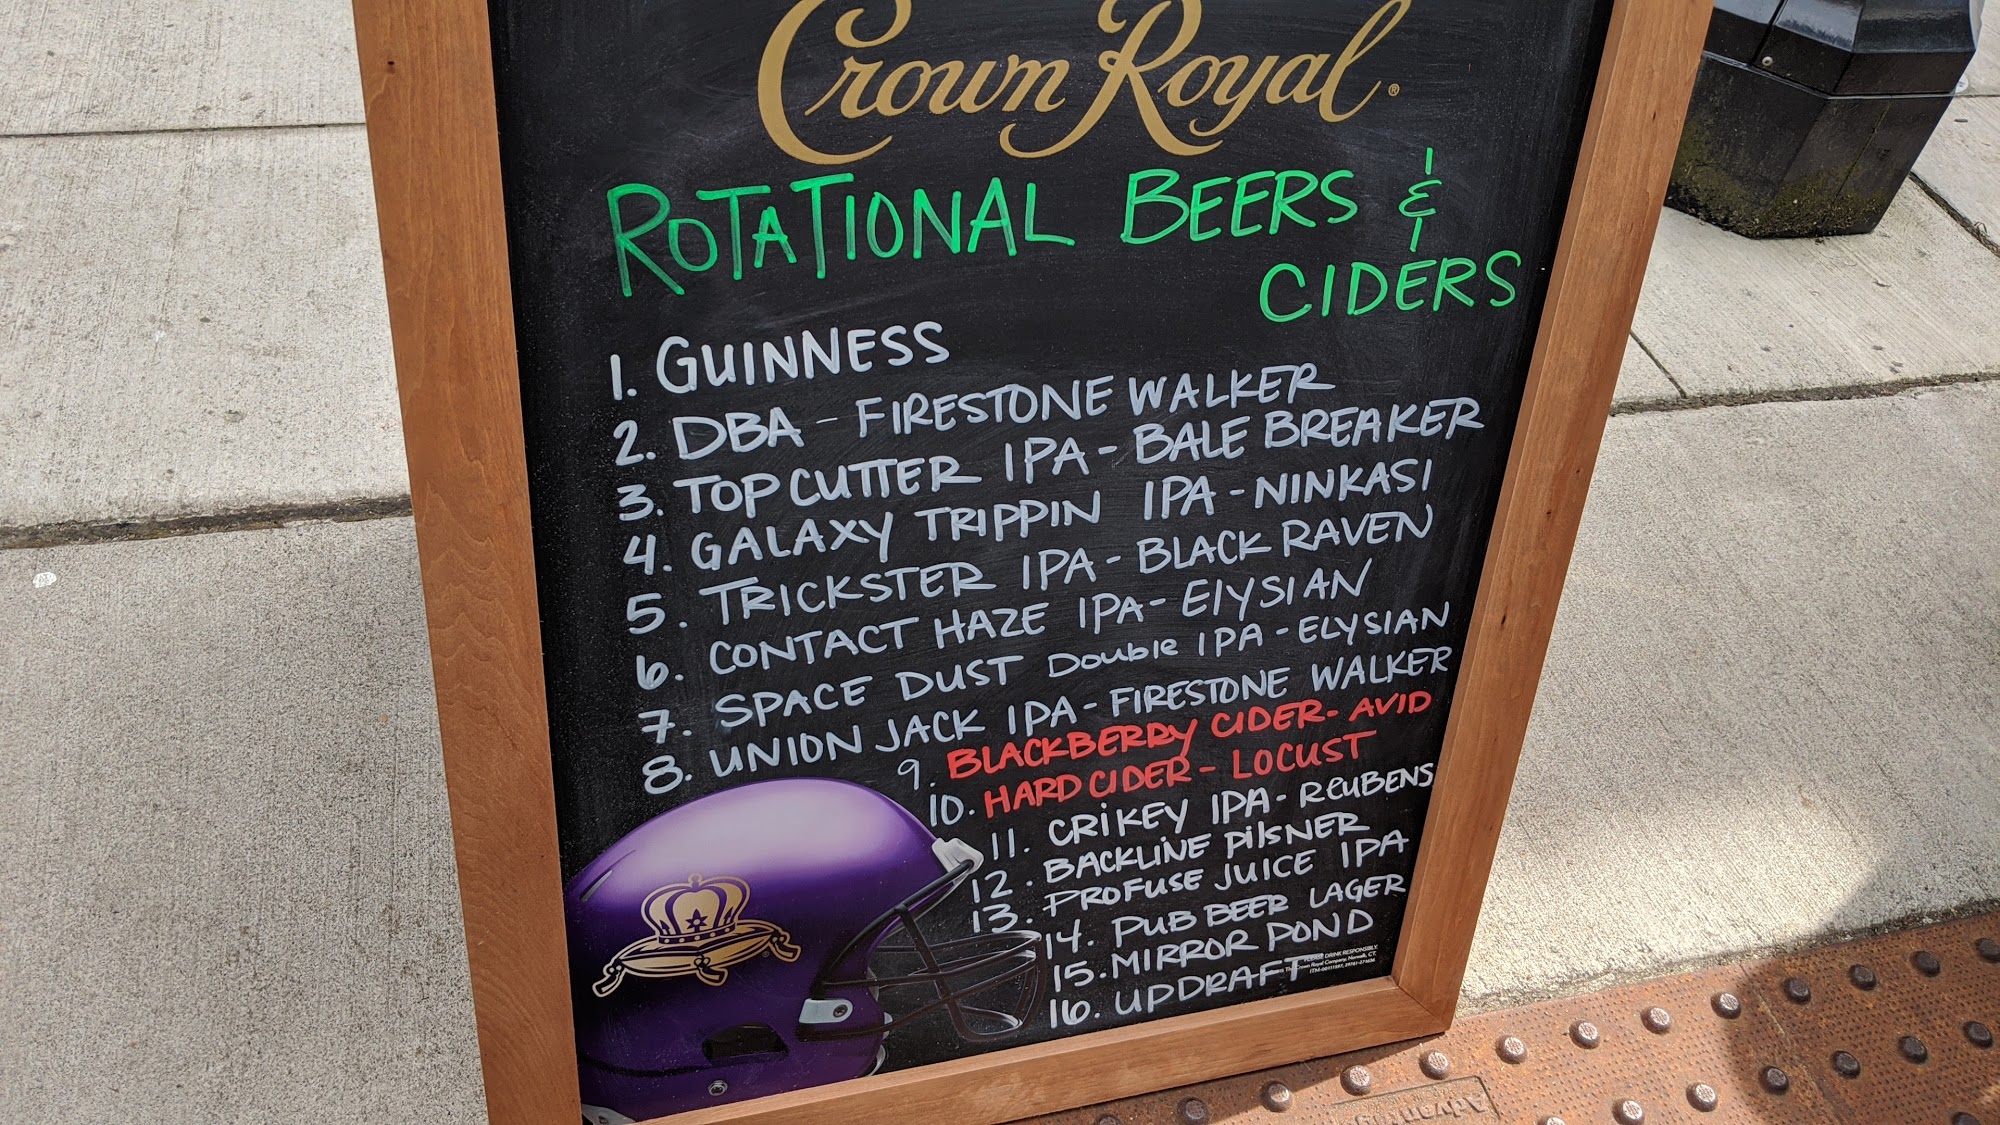 Crown Royal®
ROTATIONAL BEERS &
CIDERS
1. GUINNESS
2. DBA - FIRESTONE WALKER
3. TOPCUTTER IPA - BALE BREAKER
4. GALAXY TRIPPIN IPA - NINKASI
5. TRICKSTER IPA - BLACK RAVEN
6. CONTACT HAZE IPA - ElYSIAN
7. SPACE DUST Double IPA - ELYSIAN
8. UNION JACK IPA - FIRESTONE WALKER
9. BLACKBERRY CIDER - AVID
10. HARD CIDER - LOCUST
11. CRIKEY IPA - REUBENS
12. BACKLINE PilSNER
13. PROFUSE JUICE IPA
14. PUB BEER LAGER
15. MIRROR POND
16. UPDRAFT
PLEASE DRINK RESPONSIBLY.
The Crown Royal Company, Norwalk, CT.